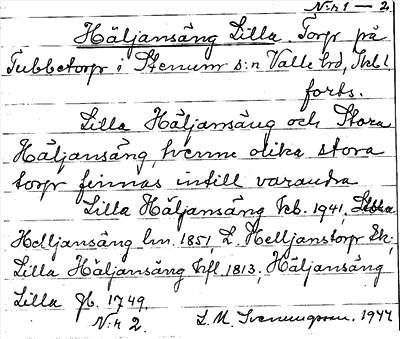 N:r 1 — 2.
Häljansäng Lilla. Torp på
Tubbetorp i Stenum s:n Valle hrd, Skbl.
forts.
Lilla Häljansäng och Stora
Häljansäng, tvenne olika stora
torp finnas intill varandra
Lilla Häljansäng kb. 1941, Stora
Helljansäng lm. 1851, L. Helljanstorp Ek;
Lilla Häljansäng hfl 1813, Häljansäng
Lilla fb. 1749.
N:r 2. L. M. Svenungsson. 1944